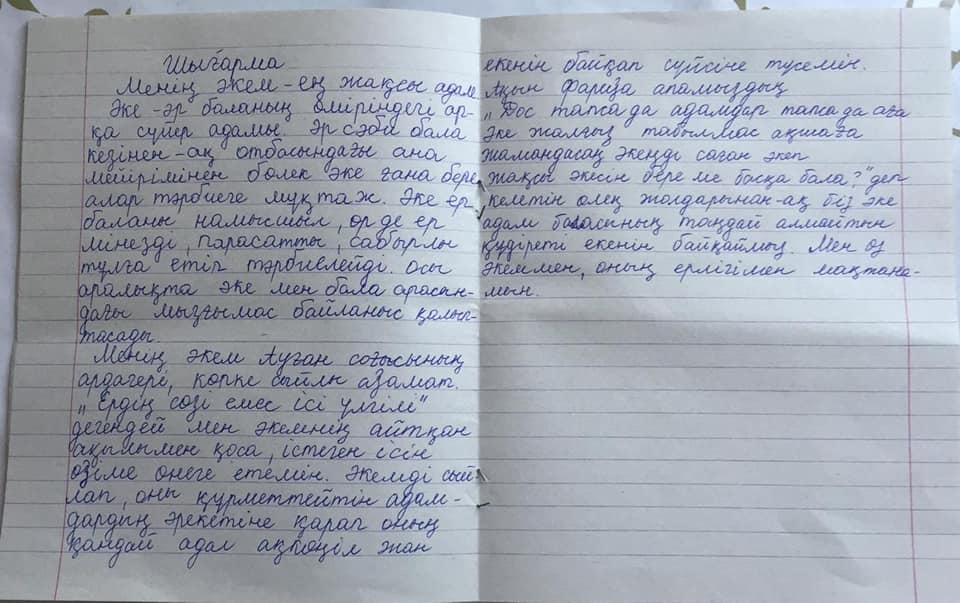 Шығарма
Менің әкем - ең жақсы адам
Әке - әр баланың өміріндегі ар-
қа сүйер адамы. Әр сәби бала
кезінен-ақ отбасындағы ана
мейірімінен бөлек әке ғана бере
алар тәрбиеге мұқтаж. Әке ер
баланы намысшыл, өр де ер
мінезді, парасатты, сабырлы
тұлға етіп тәрбиелейді. Осы
аралықта әке мен бала арасын-
дағы мызғымас байланыс қалып-
тасады.
Менің әкем Ауған соғысының
ардагері, көпке сыйлы азамат.
„Ердің сөзі емес ісі үлгілі"
дегендей мен әкемнің айтқан
ақылымен қоса, істеген ісін
өзіме өнеге етемін. Әкемді сый-
лап, оны құрметтейтін адам-
дардың әрекетіне қарап оның
қандай адал ақкөңіл жан
екенін байқап сүйсіне түсемін.
Ақын Фариза апамыздың
„Дос тапса да адамдар тапса да аға
Әке жалғыз табылмас ақшаға
жамандасаң әкеңді саған әкеп
жақсы әкісін бере ме басқа бала?" деп
келетін өлең жолдарынан-ақ біз әке
адам баласының таңдай алмайтын
құдіреті екенін байқаймыз. Мен өз
әкеммен, оның ерлігімен мақтана-
мын.